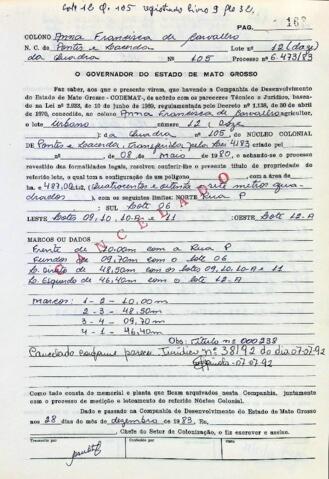 Lote 12 Q. 105 registrado livro 9 fls 32.
PAG. 168
COLONO Anna Francisca de Carvalho
N. C. de Pontes e Lacerda Lote nº 12 (doze)
da Quadra Nº 105 Processo 6.473/83
O GOVERNADOR DO ESTADO DE MATO GROSSO
Faz saber, aos que a presente virem, que havendo a Companhia de Desenvolvimento
do Estado de Mato Grosso - CODEMAT-, de acordo com os pareceres Técnico e Jurídico, baseados
na Lei nº 2.933, de 10 de junho de 1969, regulamentada pelo Decreto nº 1.138, de 30 de abril
de 1970, concedido, ao colono Anna Francisca de Carvalho agricultor,
o lote Urbano número 12 doze
da Quadra nº 105, NÚCLEO COLONIAL
DE Pontes e Lacerda, transferida pela Lei 4183 criado em
de 08 de Maio de 1980, e achando-se o processo
revestido das formalidades legais, resolveu conferir-lhe o presente título de propriedade do
referido lote, o qual tem a configuração de um polígono com a área de
ha 487,00m2, (Quatrocentos e oitenta e sete metros qua-
drados), com os seguintes limites: NORTE Rua P
SUL Lote 06
LESTE Lotes 09, 10, 10-A e 11 OESTE Lote 12-A
CANCELADO
MARCOS OU DADOS
Frente de 10.00m com a Rua P
Fundos de 09.70m com o lote 06
L. Direito de 48,50m com os lotes 09, 10, 10-A e 11
L. Esquerdo de 46,40m com o lote 12-A
Marcos: 1 - 2 = 10,00m
2 - 3 = 48,50m
3 - 4 = 09,70m
4 - 1 = 46,40m
Obs: Título nº 000238
Cancelado conforme parecer Jurídico nº 38/92 do dia 07-07-92
07-07-92
Como tudo consta do memorial e planta que ficam arquivados nesta Companhia, juntamente
com o processo de medição e loteamento do referido Núcleo Colonial.
Dado e passado na Companhia de Desenvolvimento do Estado de Mato Grosso
aos 28 dias do mês de dezembro de 1983, Eu,
Chefe do Setor de Colonização, o fiz escrever e assino.
Transcrito por Conferido por Visto